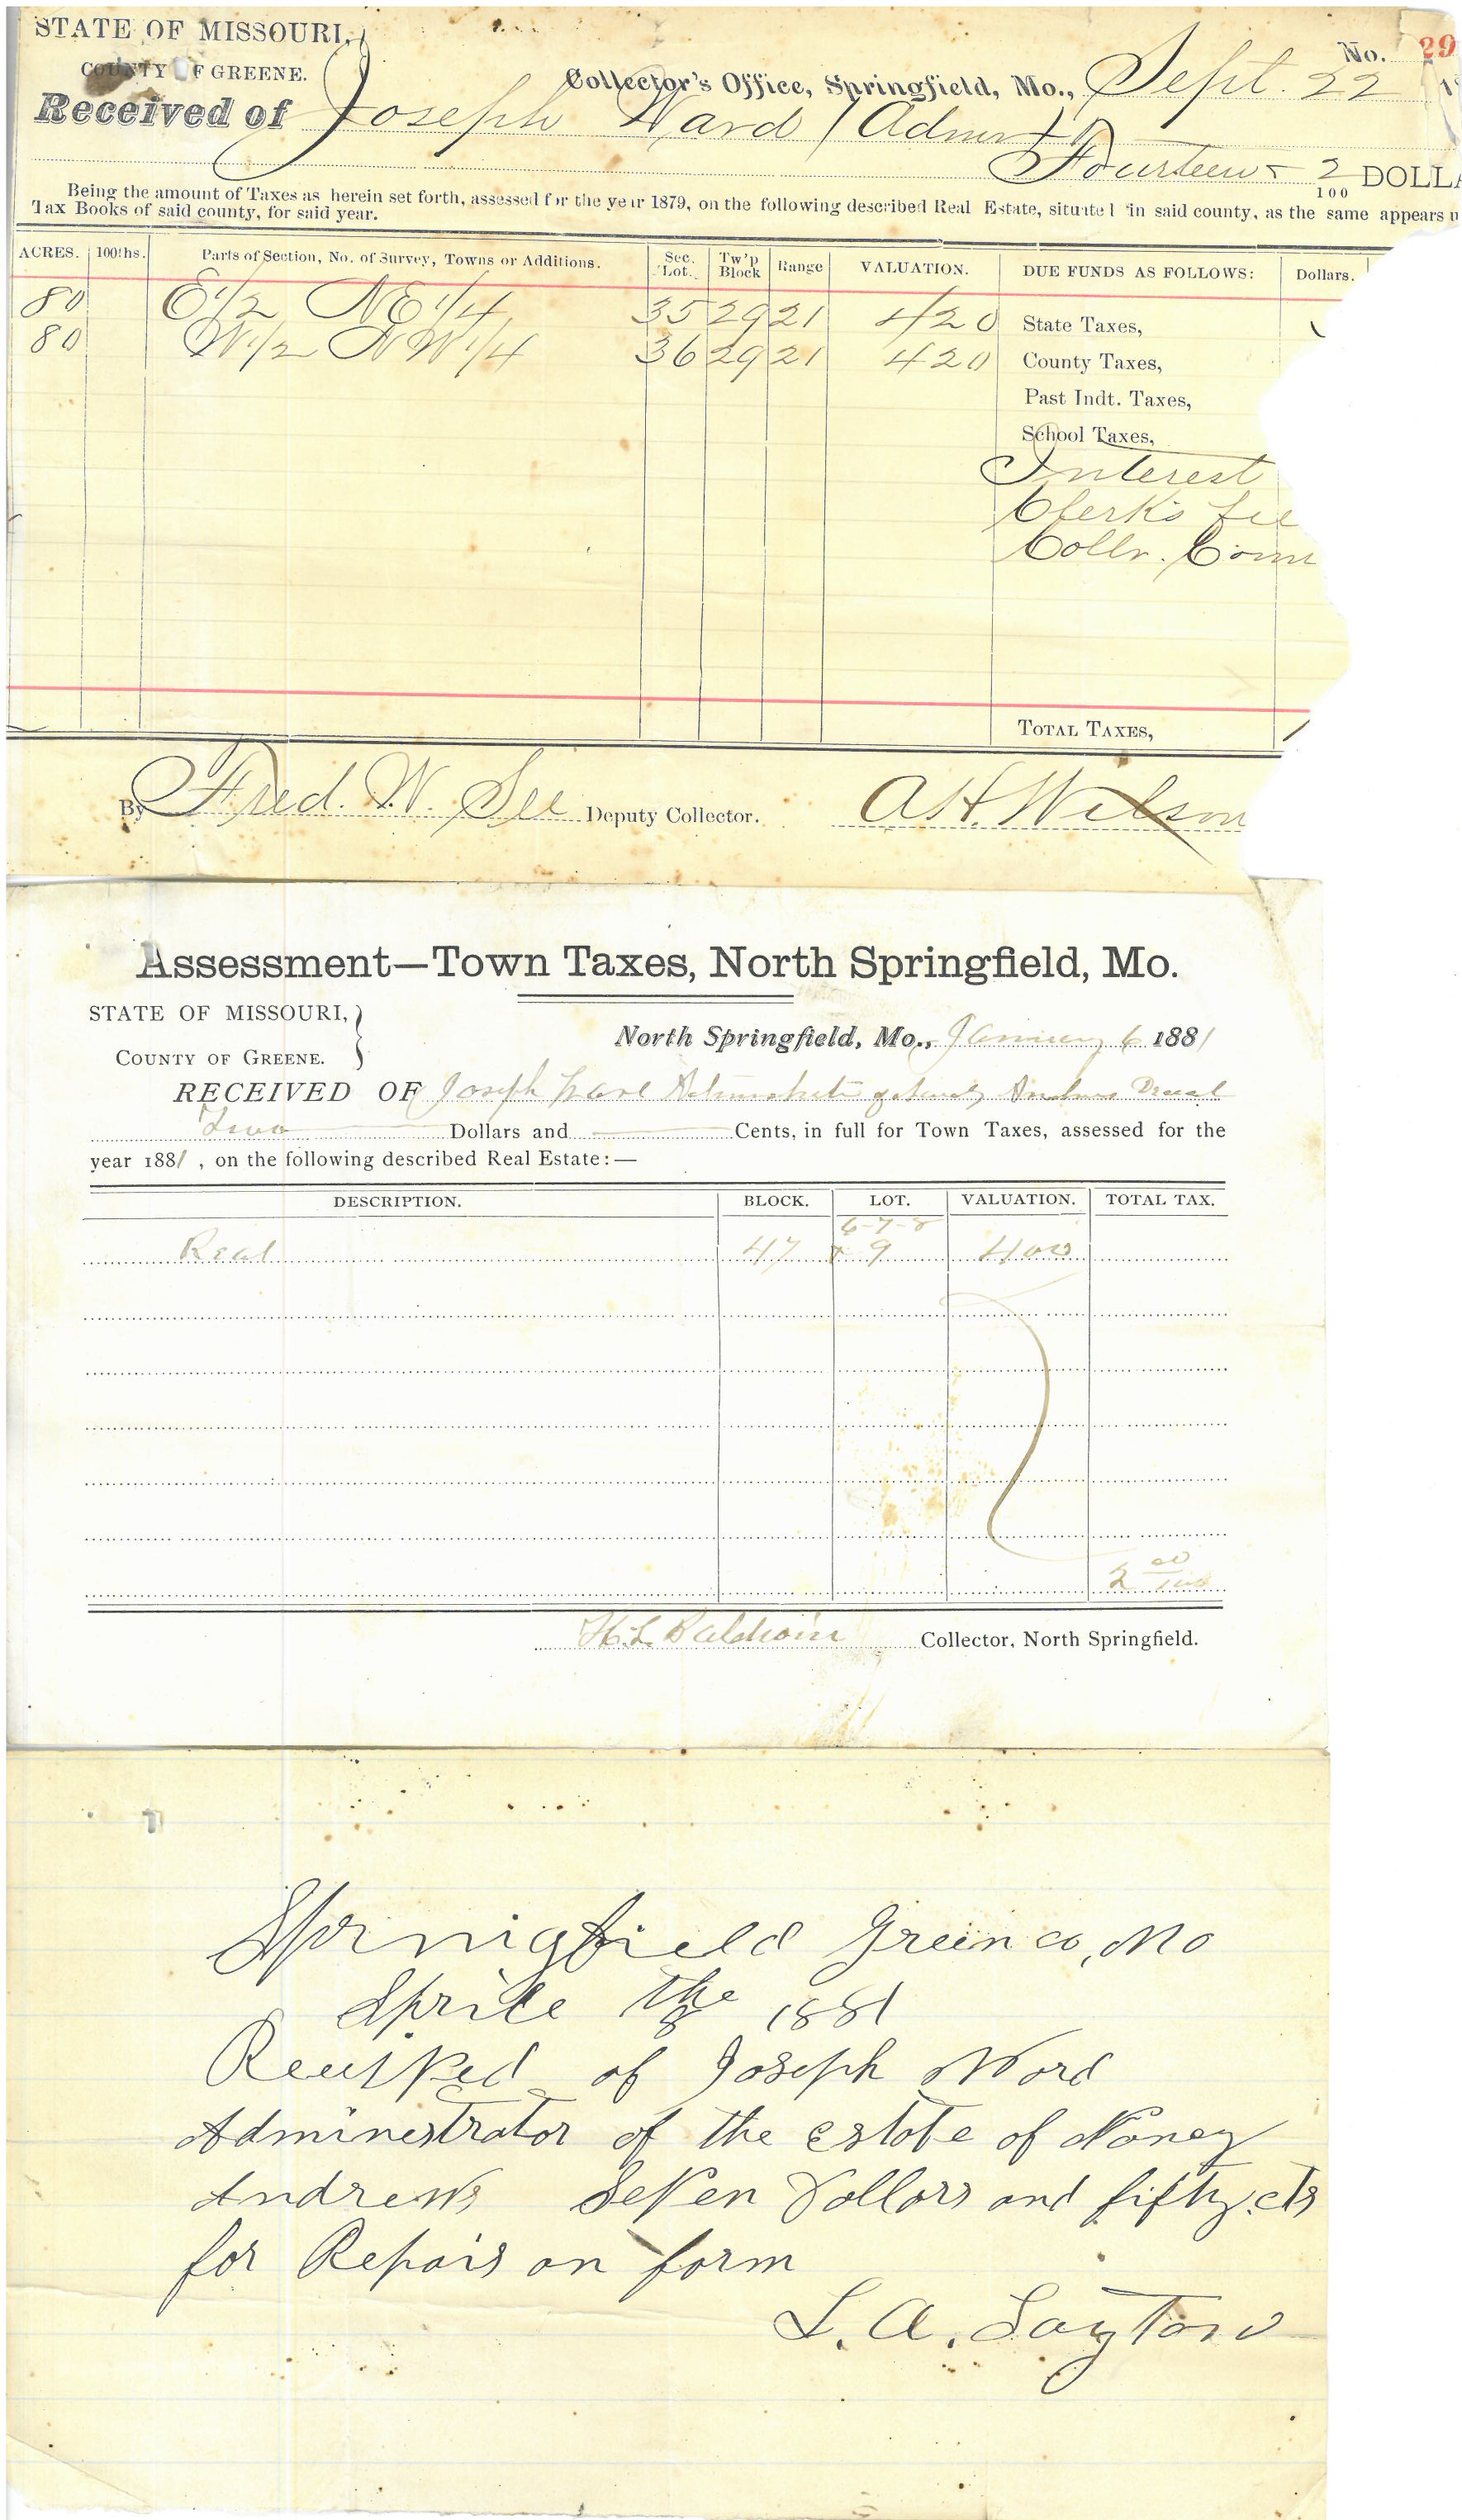 STATE OF MISSOURI,
COUNTY OF GREENE.
No. 29
Collector's Office, Springfield, Mo., Sept. 22
Received of Joseph Ward (Admr)
Fourteen 2/100 DOLLA
Being the amount of Taxes as herein set forth, assessed for the year 1879, on the following described Real Estate, situated in said county, as the same appears u
Tax Books of said county, for said year.
ACRES. 100ths. Parts of Section, No. of Survey, Towns or Additions. Sec. Lot. Tw'p Block Range VALUATION. DUE FUNDS AS FOLLOWS: Dollars.
80 E 1/2 NE 1/4 35 29 21 420 State Taxes,
80 W 1/2 NW 1/4 36 29 21 420 County Taxes,
Past Indt. Taxes,
School Taxes,
Interest
Clerk's fee
Collr. Com
TOTAL TAXES,
By Fred. W. See Deputy Collector. A.H. Wilson
Assessment—Town Taxes, North Springfield, Mo.
STATE OF MISSOURI,
COUNTY OF GREENE.
North Springfield, Mo., January 6 1881
RECEIVED OF Joseph Decd
Two Dollars and Cents, in full for Town Taxes, assessed for the
year 1881, on the following described Real Estate:—
DESCRIPTION. BLOCK. LOT. VALUATION. TOTAL TAX.
6-7-8
Real 47 & 9 400
2 00/100
H.L. Baldwin Collector, North Springfield.
Springfield Green co, Mo
Aprile the 8 1881
of Joseph Word
Administrator of the estate of Nancy
Andrews Seven Dollars and fifty cts
for Repairs on farm
L. A. Layton